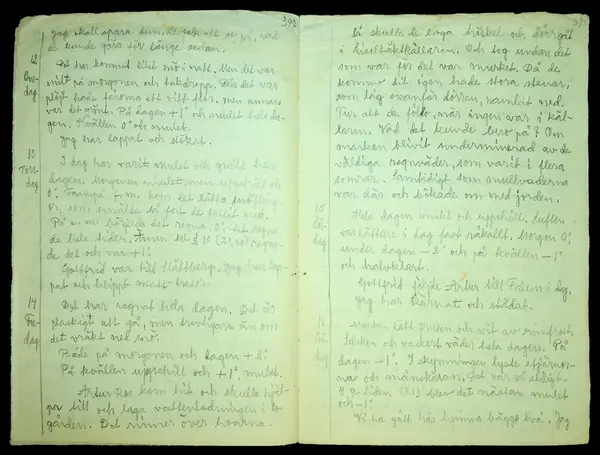 392
Jag skall spara dem, så får att se på, vad
de kunde göra för länge sedan.
12
Ons-
dag
Det har kommit litet snö i natt. Men det var
milt på morgonen och takdropp. Där det var
plöjt hade tärorna ett vitt flor, men annars
var det grönt. På dagen +1° och mulet hela da-
gen. I kvällen 0° och mulet.
Jag har lappat och stökat.
13
Tors-
dag
I dag har varit mulet och grått hela
dagen. Morgonen mulet, men uppehåll och
0°. f.m. kom det lätta snöfling-
or, som smälte så fort de föllo ned.
På e.m. började det regna. 0°. Det regna-
de hela tiden. Ännu kl. 10 (21) regna-
de det och var +1°.
Gottfrid var till Slättberg. Jag har lap-
pat och klippt matt-trasor.
14
Fre-
dag
Det har regnat hela dagen. Det är
slaskigt att gå, men trevligare än om
det vräkt ned snö.
Både på morgonen och dagen + 2°.
På kvällen uppehåll och +1°, mulet.
Artur Ros kom hit och skulle hjäl-
pa till och laga vattenledningen i la-
gården. Det rinner över hoarna.
Så skulle de laga tröskel och dörrgåt
i hiselbäktkällaren. Och tog undan det
som var för det var murket. Då de
kommo dit igen hade stora stenar,
som låg ovanför dörren, ramlat ned.
Tur att de föllo, när ingen var i käl-
laren. Vad det kunde bero på? Om
marken blivit underminerad av de
väldiga regnväder, som varit i flera
somrar. Samtidigt som mullvaderna
var där och bökade om med jorden.
15
Lör-
dag
Hela dagen mulet och uppehåll. Luften
var lättare i dag fast råkallt. Morgon 0°,
under dagen - 2° och på kvällen -1°
och halvklart.
Gottfrid följde Artur till Falun i dag.
Jag har kärnat och städat.
16
marken lätt frusen och vit av rimfrost.
Lacken och vackert väder hela dagen. På
dagen -1°. I skymningen lyste stjärnor-
na och månskäran. Det var så ståtligt.
9 tiden (21) blev det nästan mulet
och -1°.
Vi ha gått här hemma bägge två. Jag